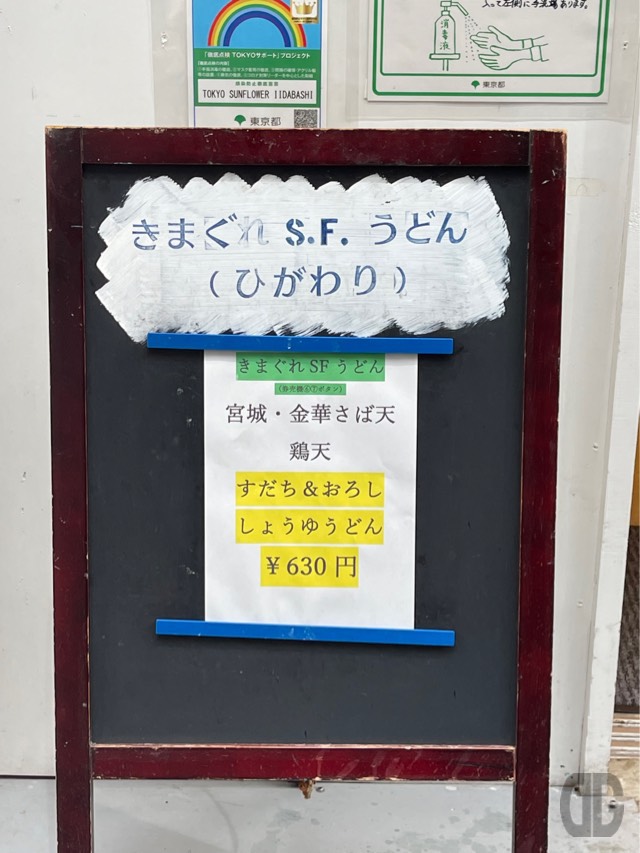 「徹底点検 TOKYOサポート」プロジェクト
TOKYO SUNFLOWER IIDABASHI
東京都
入って左側に手洗場あります。
消毒液
東京都
きまぐれ S.F. うどん
(ひがわり)
きまぐれSFうどん
宮城・金華さば天
鶏天
すだち&おろし
しょうゆうどん
¥630円